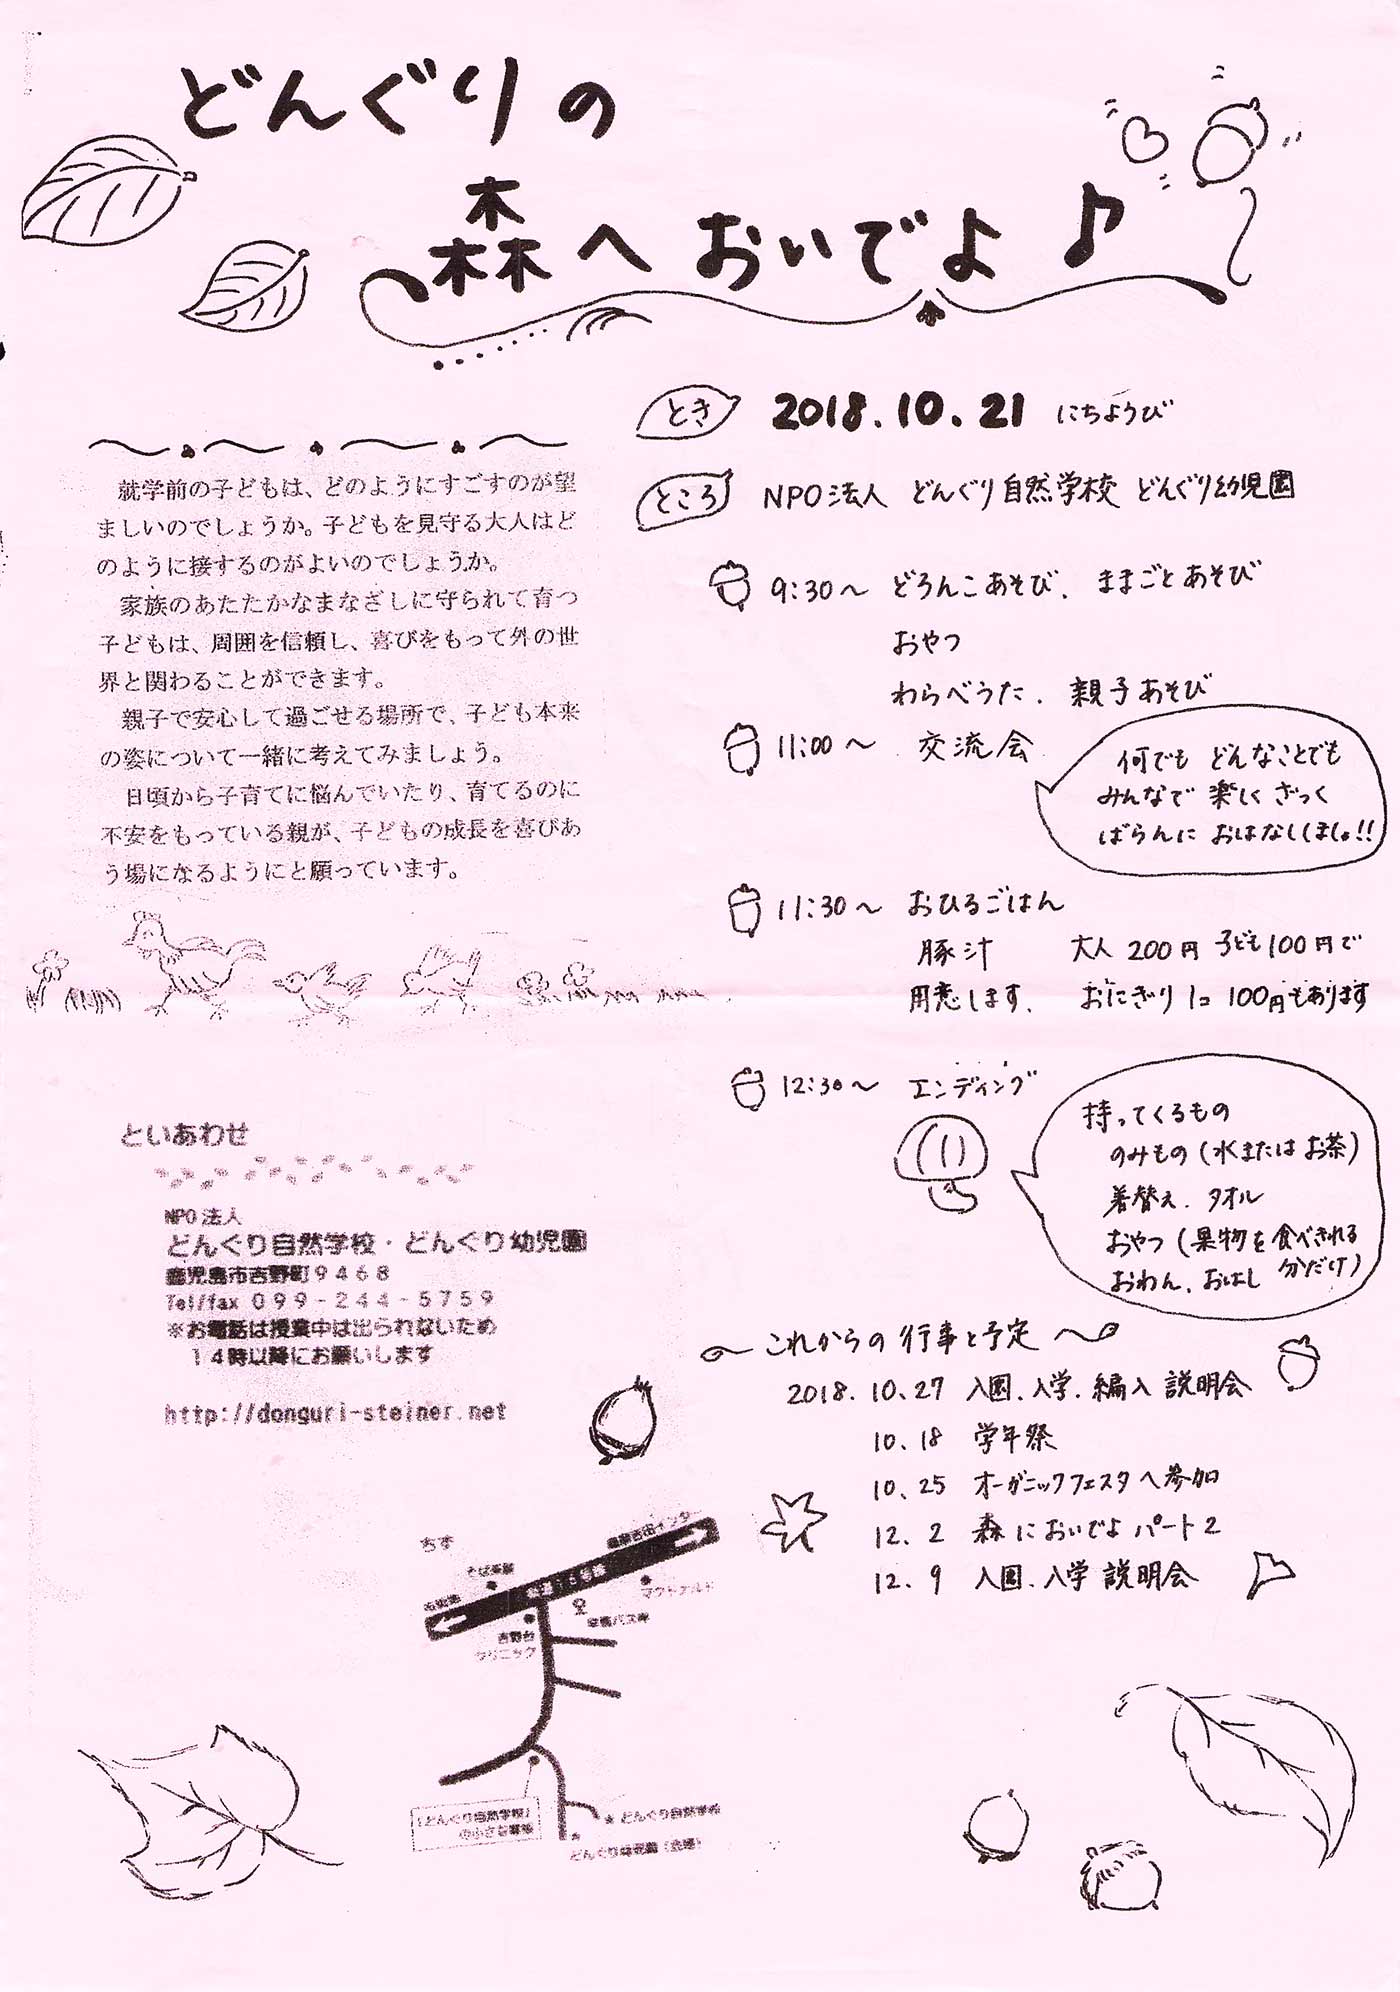 どんぐりの
森へ おいでよ♪
とき 2018.10.21 にちようび
ところ NPO法人 どんぐり自然学校 どんぐり幼児園
就学前の子どもは、どのようにすごすのが望
ましいのでしょうか。子どもを見守る大人はど
のように接するのがよいのでしょうか。
家族のあたたかなまなざしに守られて育つ
子どもは、周囲を信頼し、喜びをもって外の世
界と関わることができます。
親子で安心して過ごせる場所で、子ども本来
の姿について一緒に考えてみましょう。
日頃から子育てに悩んでいたり、育てるのに
不安をもっている親が、子どもの成長を喜びあ
う場になるようにと願っています。
9:30〜 どろんこあそび、ままごとあそび
おやつ
わらべうた、親子あそび
11:00〜 交流会
何でも どんなことでも
みんなで 楽しく ざっく
ばらんに おはなししましょ!!
11:30〜 おひるごはん
豚汁 大人 200円 子ども100円で
用意します、 おにぎり1コ 100円もあります
12:30〜 エンディング
持ってくるもの
のみもの(水または お茶)
着替え、タオル
おやつ(果物を 食べきれる
分だけ)
おわん、おはし
といあわせ
NPO法人
どんぐり自然学校・どんぐり幼児園
鹿児島市吉野町9468
Tel/fax 099-244-5759
※お電話は授業中は出られないため
14時以降にお願いします
http://donguri-steiner.net
これからの 行事と予定
2018.10.27 入園、入学、編入 説明会
10.18 学年祭
10.25 オーガニックフェスタへ参加
12.2 森においでよ パート2
12.9 入園、入学 説明会
ちず
マクドナルド
吉野台
クリニック
「どんぐり自然学校」
の小さな看板
★どんぐり自然学校
どんぐり幼児園(会場)